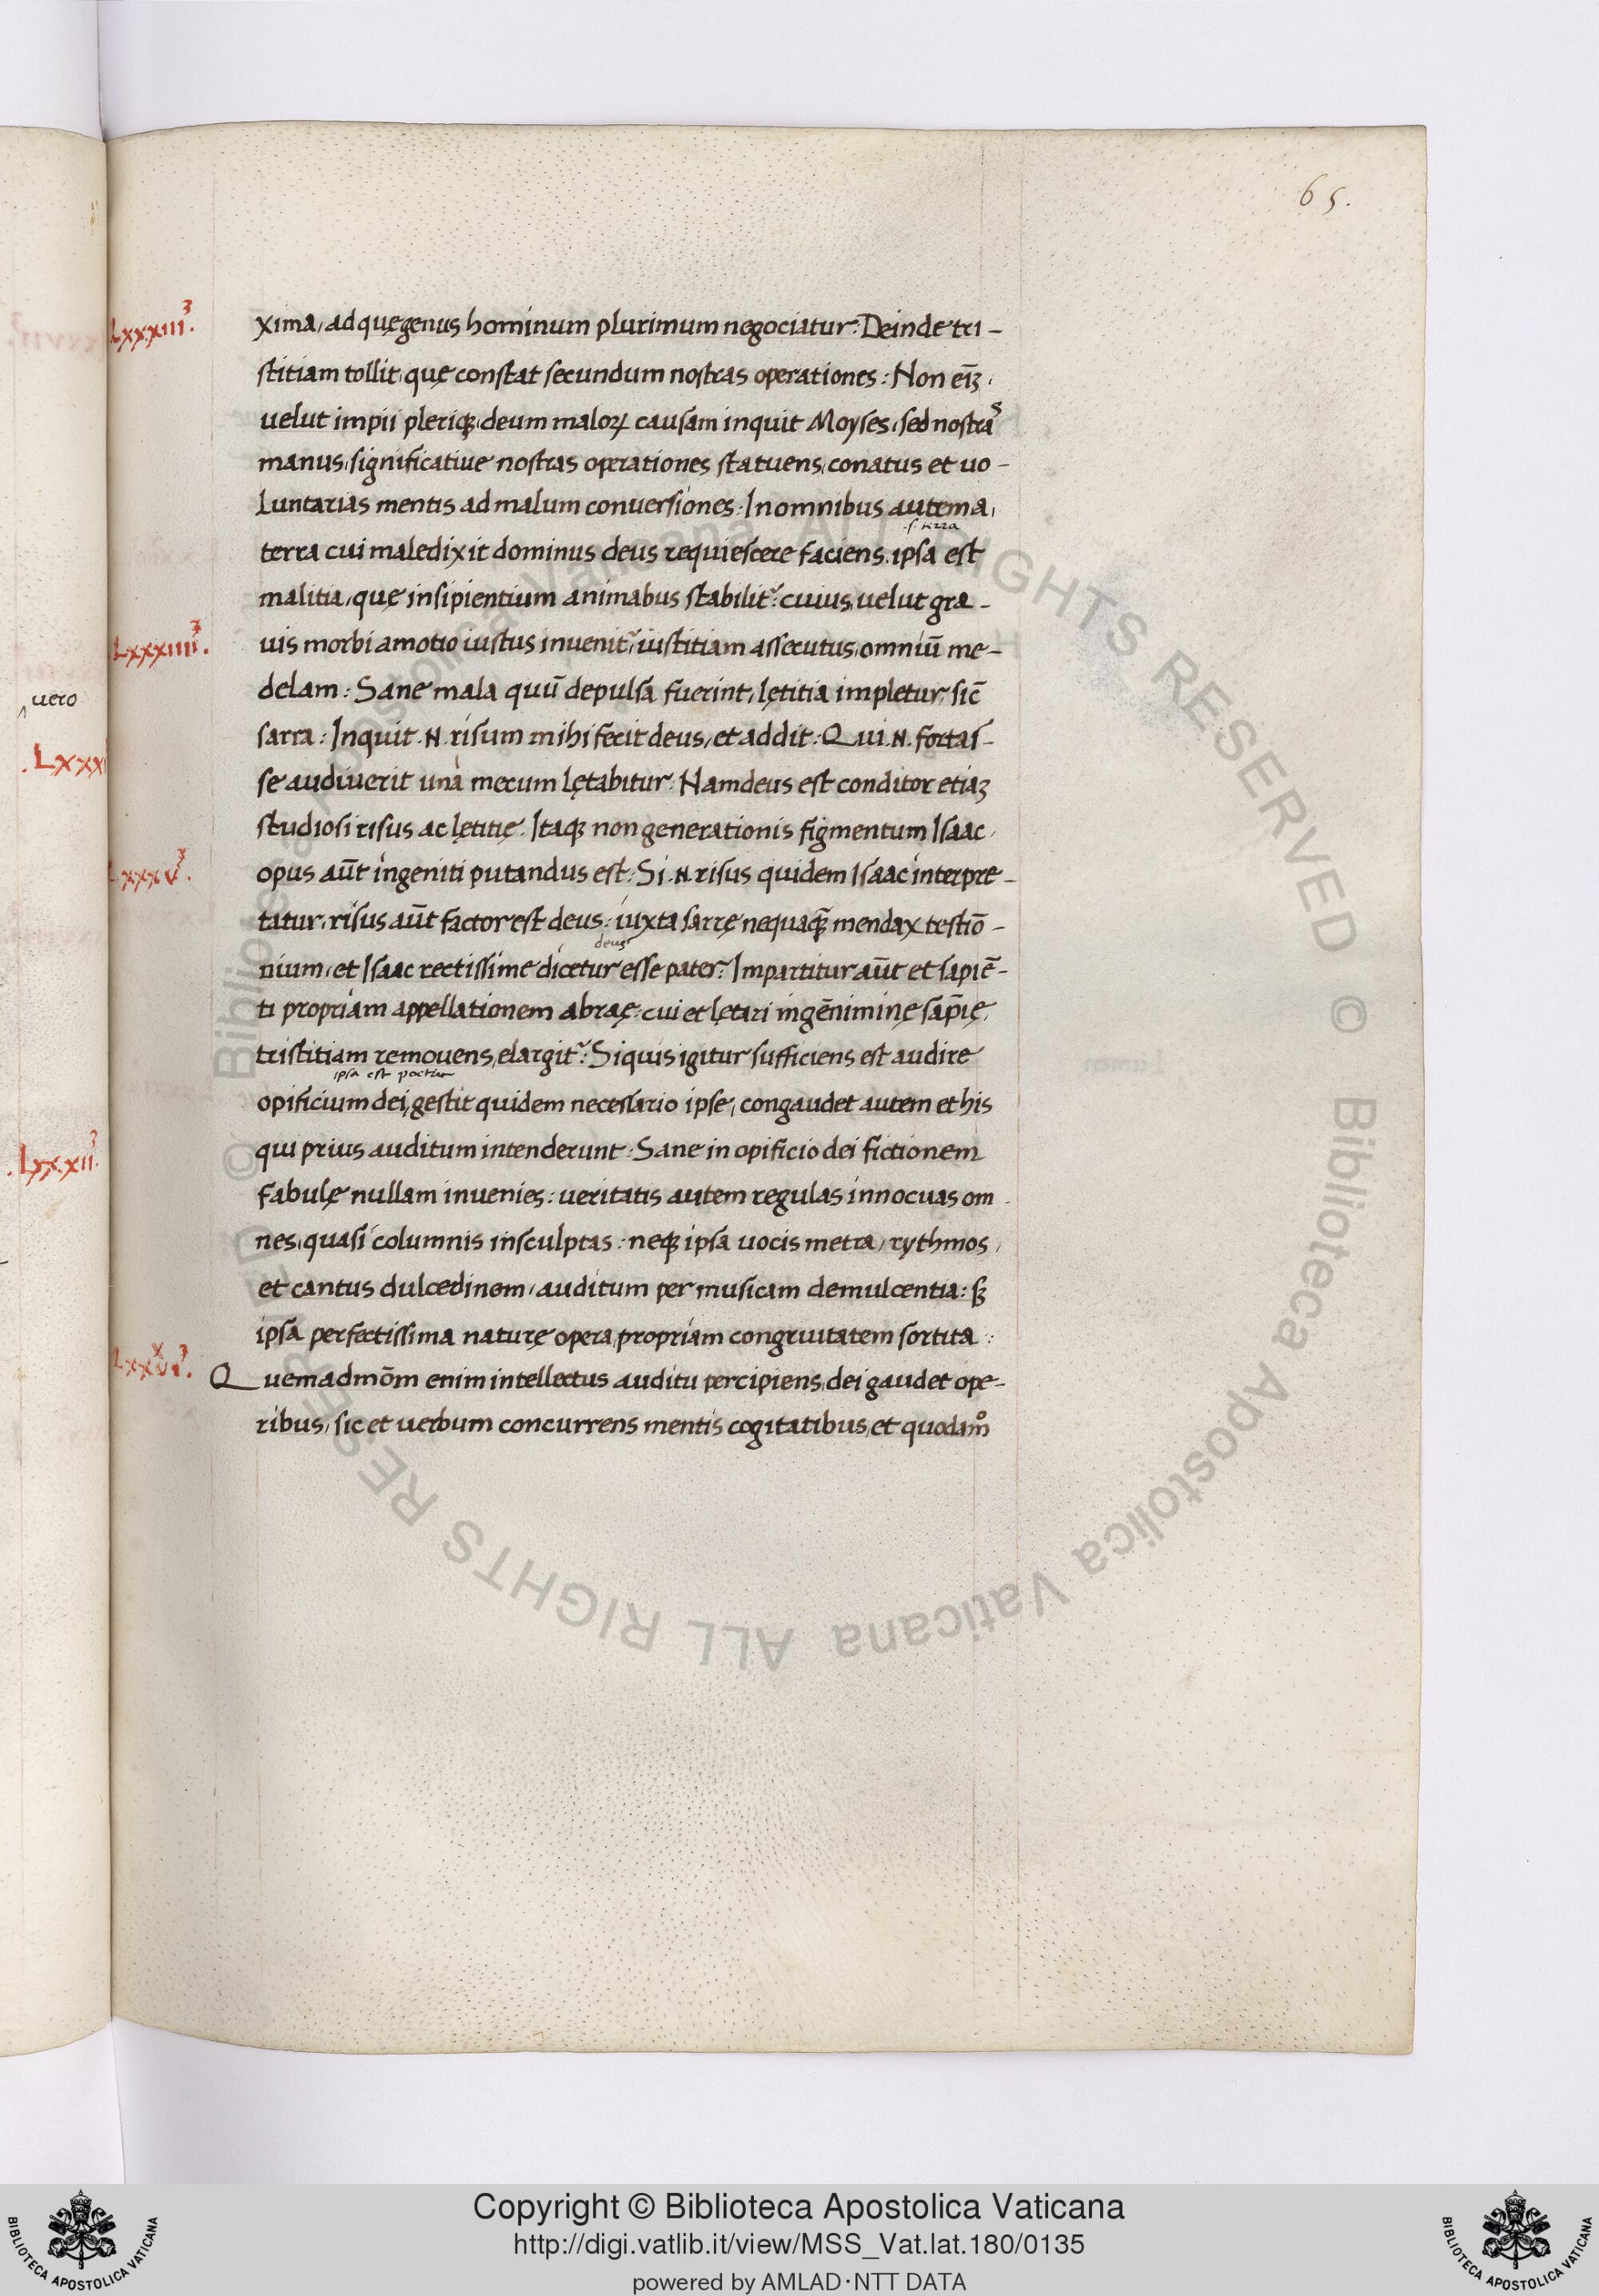 65.
Lxxxiii3.
xima, ad quę genus hominum plurimum negociatur: Deinde tri-
stitiam tollit, quę constat secundum nostras operationes: Non eīʒ,
uelut impii pleriqʒ, deum maloꝝ causam inquit Moyses, sed nostras
manus, significatiue nostras operationes statuens, conatus et uo-
Luntarias mentis ad malum conuersiones: In omnibus autem a,
.s. terra
terra cui maledixit dominus deus requiescere faciens. ipsa est
malitia, quę insipientium animabus stabilit᷑: cuius, uelut gra-
Lxxxiiii3.
uis morbi amotio iustus inuenit᷑, iustitiam assecutus, omniū me-
delam: Sane mala quū depulsa fuerint, lętitia impletur, sic̄
uero
sarra: Inquit .N. risum mihi fecit deus, et addit: Qui .N. fortas-
.Lxxx
se audiuerit unà mecum lętabitur: Nam deus est conditor etiaʒ
studiosi risus ac lętitię: Itaqʒ non generationis figmentum Isaac,
Lxxxv3.
opus aūt ingeniti putandus est: Si .N. risus quidem Isaac interpre-
tatur, risus aūt factor est deus: iuxta sarrę nequaqʒ̄ mendax testiō-
deus
nium, et Isaac rectissime dicetur esse pater: Impartitur aūt et sapiē-
ti propriam appellationem abraę: cui et lętari ingēniminę sap̄ię,
tristitiam remouens, elargit᷑: Siquis igitur sufficiens est audire
ipsa est poetar
opificium dei, gestit quidem necessario ipse, congaudet autem et his
.Lxxxii3.
qui prius auditum intenderunt: Sane in opificio dei fictionem
fabulę nullam inuenies: ueritatis autem regulas innocuas om-
nes, quasi columnis insculptas: neqʒ ipsa uocis metra, rythmos,
et cantus dulcedinem, auditum per musicam demulcentia: sʒ
ipsa perfectissima naturę opera, propriam congruitatem sortita:
Lxxxvi3.
Quemadmōm enim intellectus auditu percipiens, dei gaudet ope-
ribus, sic et uerbum concurrens mentis cogitatibus, et quodam̊
© Biblioteca Apostolica Vaticana ALL RIGHTS RESERVED
Copyright © Biblioteca Apostolica Vaticana
http://digi.vatlib.it/view/MSS_Vat.lat.180/0135
powered by AMLAD·NTT DATA
BIBLIOTECA APOSTOLICA VATICANA
BIBLIOTECA APOSTOLICA VATICANA